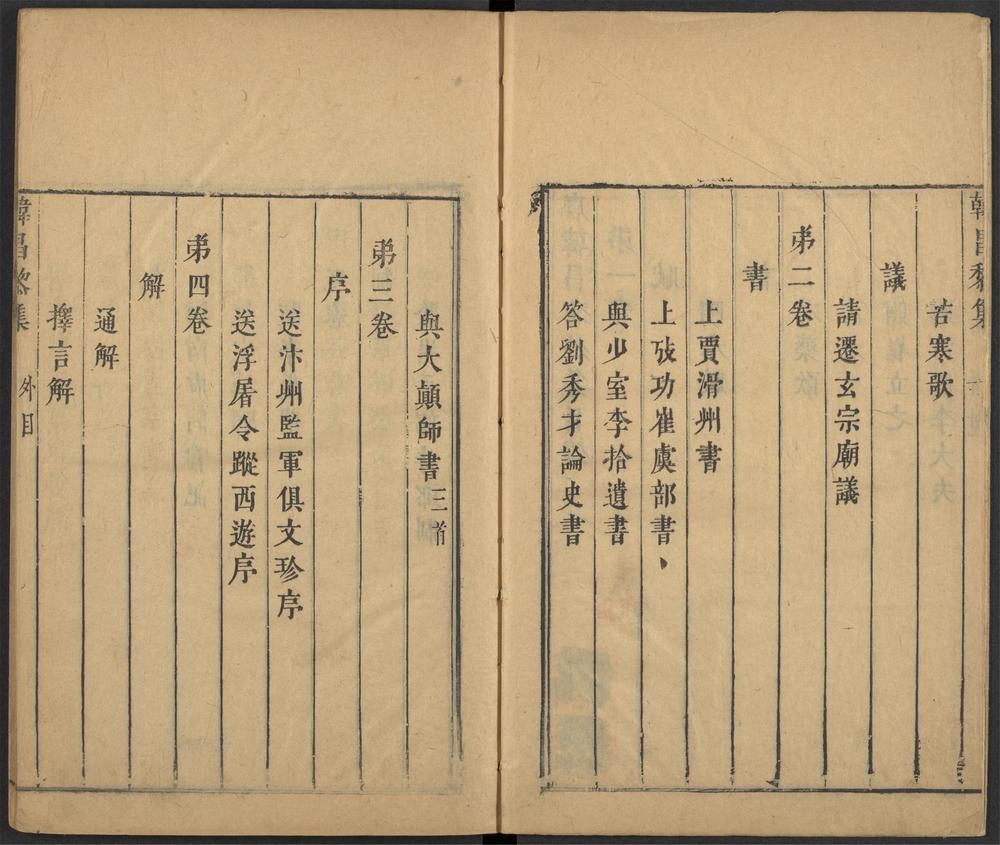 韓昌黎集
苦寒歌
議
請遷玄宗廟議
弟二卷
書
上賈滑州書
上攷功崔虞部書、
與少室李拾遺書
答劉秀才論史書
與大顛師書三首
弟三卷
序
送汴州監軍俱文珍序
送浮屠令蹤西遊序
弟四卷
解
通解
擇言解
韓昌黎集 外目